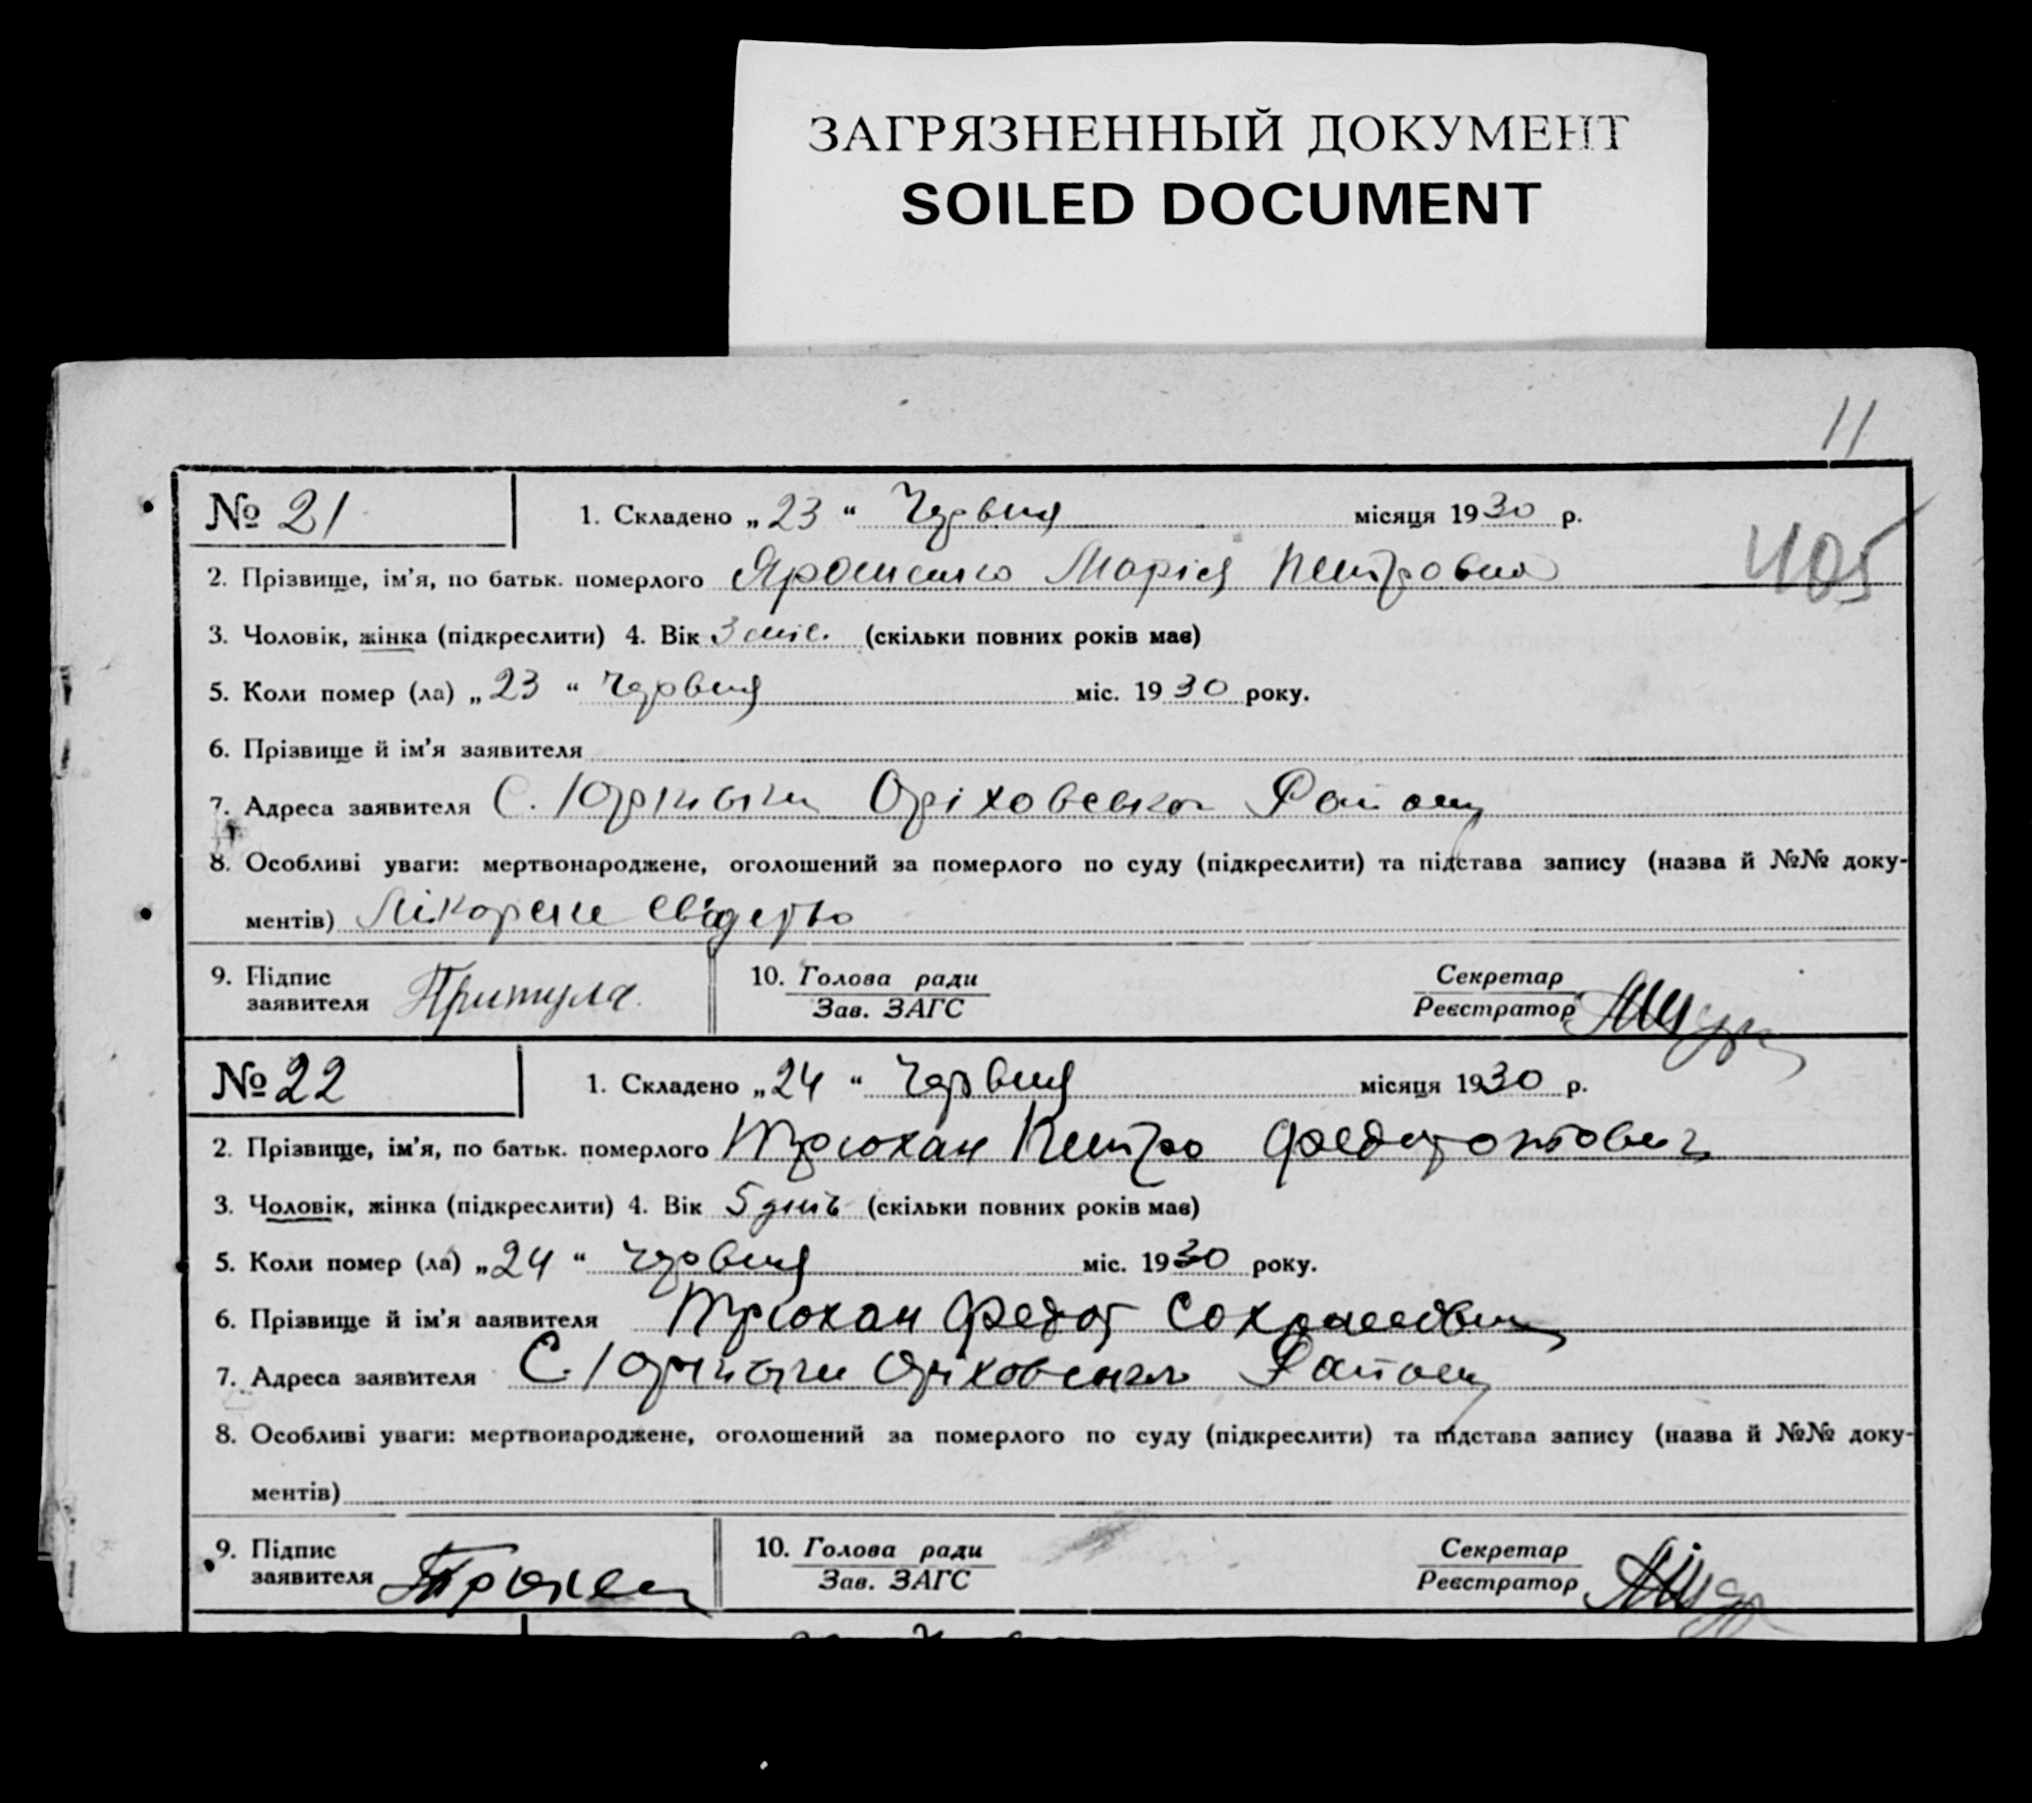 ЗАГРЯЗНЕННЫЙ ДОКУМЕНТ
SOILED DOCUMENT
11
№ 21 1. Складено „23“ Червня місяця 1930 р.
405
2. Прізвище, ім’я, по батьк. померлого Ярошенко Марія Петровна
3. Чоловік, жінка (підкреслити) 4. Вік 3 міс. (скільки повних років має)
5. Коли помер (ла) „23“ Червня міс. 1930 року.
6. Прізвище й ім’я заявителя
7. Адреса заявителя С. Юрківки Оріховськог Району
8. Особливі уваги: мертвонароджене, оголошений за померлого по суду (підкреслити) та підстава запису (назва й №№ доку-
ментів) Лікарсне
9. Підпис 10. Голова ради Секретар
заявителя Притула Зав. ЗАГС Реєстратор
№ 22 1. Складено „24“ Червня місяця 1930 р.
2. Прізвище, ім’я, по батьк. померлого Трюхан Петро
3. Чоловік, жінка (підкреслити) 4. Вік 5 днів (скільки повних років має)
5. Коли помер (ла) „24“ Червня міс. 1930 року.
6. Прізвище й ім’я заявителя Трюхан Федот
7. Адреса заявителя С. Юрківки Оріховського Району
8. Особливі уваги: мертвонароджене, оголошений за померлого по суду (підкреслити) та підстава запису (назва й №№ доку-
ментів)
9. Підпис 10. Голова ради Секретар
заявителя Трюхан Зав. ЗАГС Реєстратор